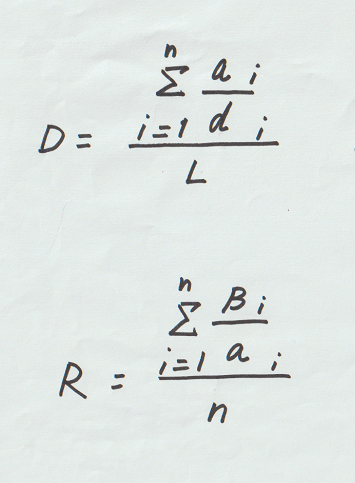 D = \frac{\sum_{i=1}^{n} \frac{a_i}{d_i}}{L}
R = \frac{\sum_{i=1}^{n} \frac{B_i}{a_i}}{n}